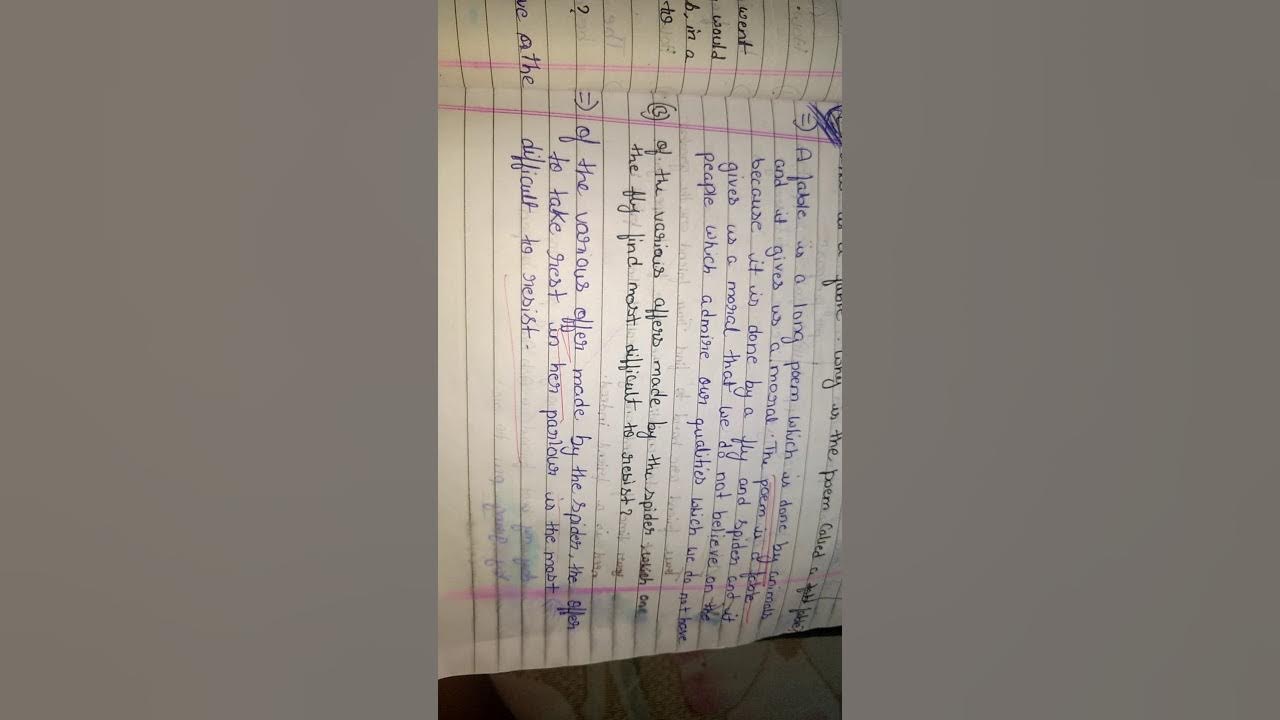 is a fable. Why is the poem called a fable
=) A fable is a long poem which is done by animals
and it gives us a moral. The poem is a fable
because it is done by a fly and spider and it
gives us a moral that we do not believe on the
people which admire our qualities which we do not have
(3) Of the various offers made by the spider which one
the fly find most difficult to resist?
=) Of the various offer made by the spider, the offer
to take rest in her parlour is the most
difficult to resist.
went
would
in a
to
?
ve on the